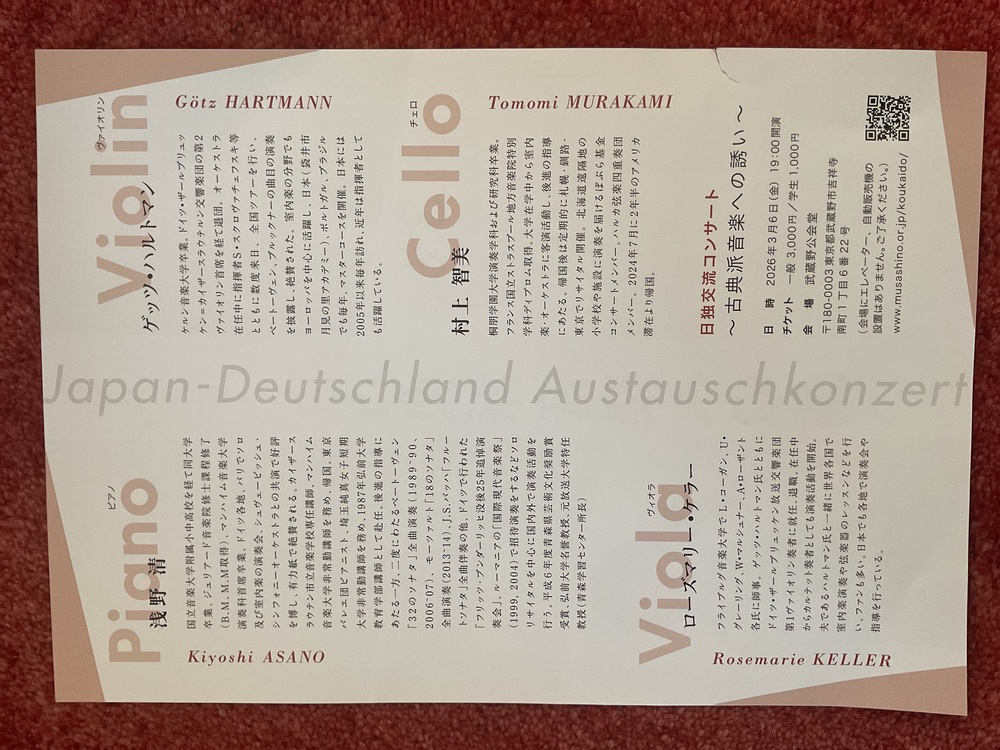 ピアノ
Piano
浅野 清
Kiyoshi ASANO
国立音楽大学附属小中高校を経て同大学
卒業。ジュリアード音楽院修士課程修了
(B.M.M.M取得)、マンハイム音楽大学
演奏科首席卒業。ドイツ各地、パリでソロ
及び室内楽の演奏会、シュヴェービッシュ・
シンフォニーオーケストラとの共演で好評
を博し、有力紙で絶賛される。カイザース
ラウテン市立音楽学校専任講師、マンハイム
音楽大学非常勤講師を務め、帰国。東京
バレエ団ピアニスト、埼玉純真女子短期
大学非常勤講師を務め、1987年弘前大学
教育学部講師として赴任、後進の指導に
あたる一方、二度にわたるベートーヴェン
「32のソナタ」全曲演奏(1989-'90、
2006-'07)、モーツァルト「18のソナタ」
全曲演奏(2013-'14)、J.S.バッハ「フルー
トソナタ」全曲伴奏の他、ドイツで行われた
「フリッツ・ブンダーリッヒ没後25年追悼演
奏会」、ルーマニアの「国際現代音楽祭」
(1999、2004)で招待演奏をするなどソロ
リサイタルを中心に国内外で演奏活動を
行う。平成6年度青森県芸術文化奨励賞
受賞、弘前大学名誉教授、元放送大学特任
教授(青森学習センター所長)
ヴァイオリン
Violin
ゲッツ・ハルトマン
Götz HARTMANN
ケルン音楽大学卒業。ドイツ・ザールブリュッ
ケン=カイザースラウテルン交響楽団の第2
ヴァイオリン首席を経て退団。オーケストラ
在任中に指揮者S・スクロヴァチェフスキ等
とともに数度来日、全国ツアーを行い、
ベートーヴェン、ブルックナーの曲目の演奏
を披露し、絶賛された。室内楽の分野でも
ヨーロッパを中心に活躍し、日本(袋井市
月見の里アカデミー)、ポルトガル、ブラジル
でも毎年、マスターコースを開催。日本には
2005年以来毎年訪れ、近年は指揮者として
も活躍している。
Japan-Deutschland Austauschkonzert
チェロ
Cello
村上 智美
Tomomi MURAKAMI
桐朋学園大学演奏学科および研究科卒業。
フランス国立ストラスブール地方音楽院特別
学科ディプロム取得。大学在学中から室内
楽・オーケストラに客演活動し、後進の指導
にあたる。帰国後は定期的に札幌・釧路・
東京でリサイタル開催。北海道遠隔地の
小学校や施設に演奏を届けるぽぷら基金
コンサートメンバー。ハルカ弦楽四重奏団
メンバー。2024年7月に2年半のアメリカ
滞在より帰国。
ヴィオラ
Viola
ローズマリー・ケラー
Rosemarie KELLER
フライブルグ音楽大学でL・コーガン、U・
グレーリング、W・マシュナー、A・ローザント
各氏に師事。ゲッツ・ハルトマン氏とともに
ドイツ・ザールブリュッケン放送交響楽団
第1ヴァイオリン奏者に就任、退職。在任中
からカルテット奏者としても演奏活動を開始。
夫であるハルトマン氏と一緒に世界各国で
室内楽演奏や弦楽器のレッスンなどを行
い、ファンも多い。日本でも各地で演奏会や
指導を行っている。
日独交流コンサート
~古典派音楽への誘い~
日 時 2026年3月6日(金) 19:00開演
チケット 一般 3,000円/学生 1,000円
会 場 武蔵野公会堂
〒180-0003 東京都武蔵野市吉祥寺
南町1丁目6番22号
(会場にエレベーター、自動販売機の
設置はありません。ご了承ください。)
www.musashino.or.jp/koukaido/